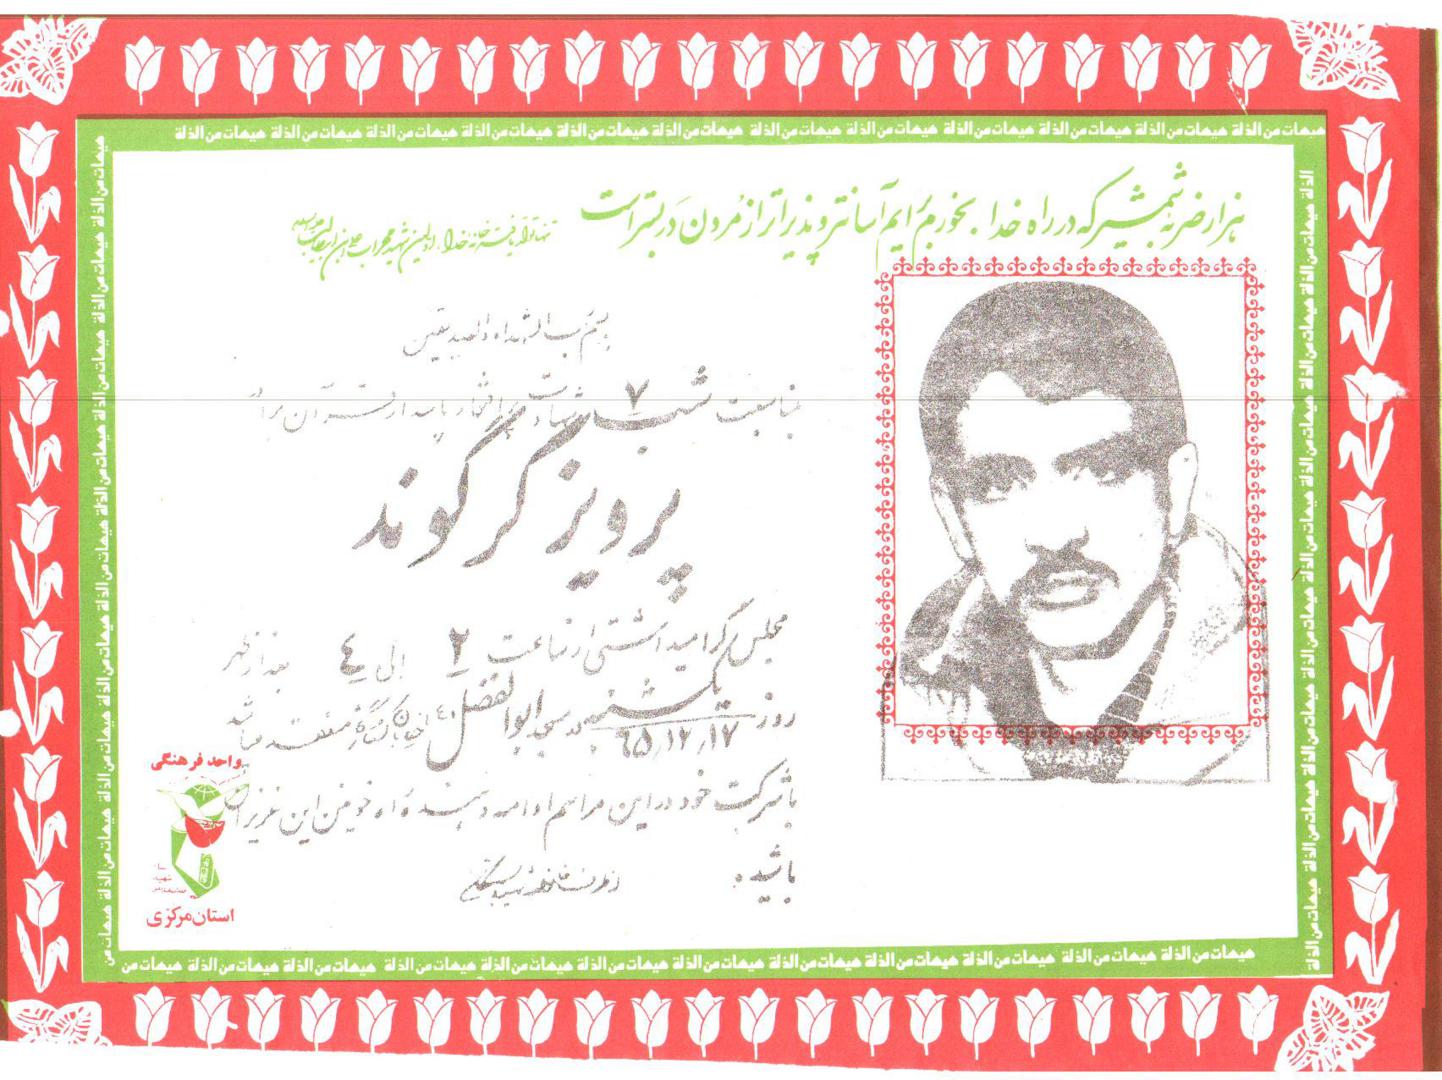 هیهات من الذلة هیهات من الذلة هیهات من الذلة هیهات من الذلة هیهات من الذلة هیهات من الذلة هیهات من الذلة هیهات من الذلة هیهات من الذلة هیهات من الذلة هیهات من الذلة هیهات من الذلة
هزار ضربه شمشیر که در راه خدا بخورم برایم آسانتر و پذیراتر از مردن در بستر است
خانه خدا، اولین شهید محراب علی ابن ابیطالب
بسم رب الشهداء و الصدیقین
بمناسبت شب ۷ شهادت پر افتخار پاسدار قرآن برادر
پرویز گرگوند
مجلس گرامیداشتی از ساعت ۲ الی ٤ بعد از ظهر
روز یکشنبه ۶۵/۱۲/۱۷ در مسجد ابوالفضل منعقد میباشد
با شرکت خود در این مراسم ادامه دهنده راه خونین این عزیزان
باشید.
واحد فرهنگی
شهید
استان مرکزی
هیهات من الذلة هیهات من الذلة هیهات من الذلة هیهات من الذلة هیهات من الذلة هیهات من الذلة هیهات من الذلة هیهات من الذلة هیهات من الذلة هیهات من الذلة هیهات من الذلة هیهات من